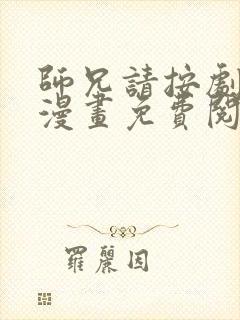 師兄請按劇
漫畫免費閱
羅麗因